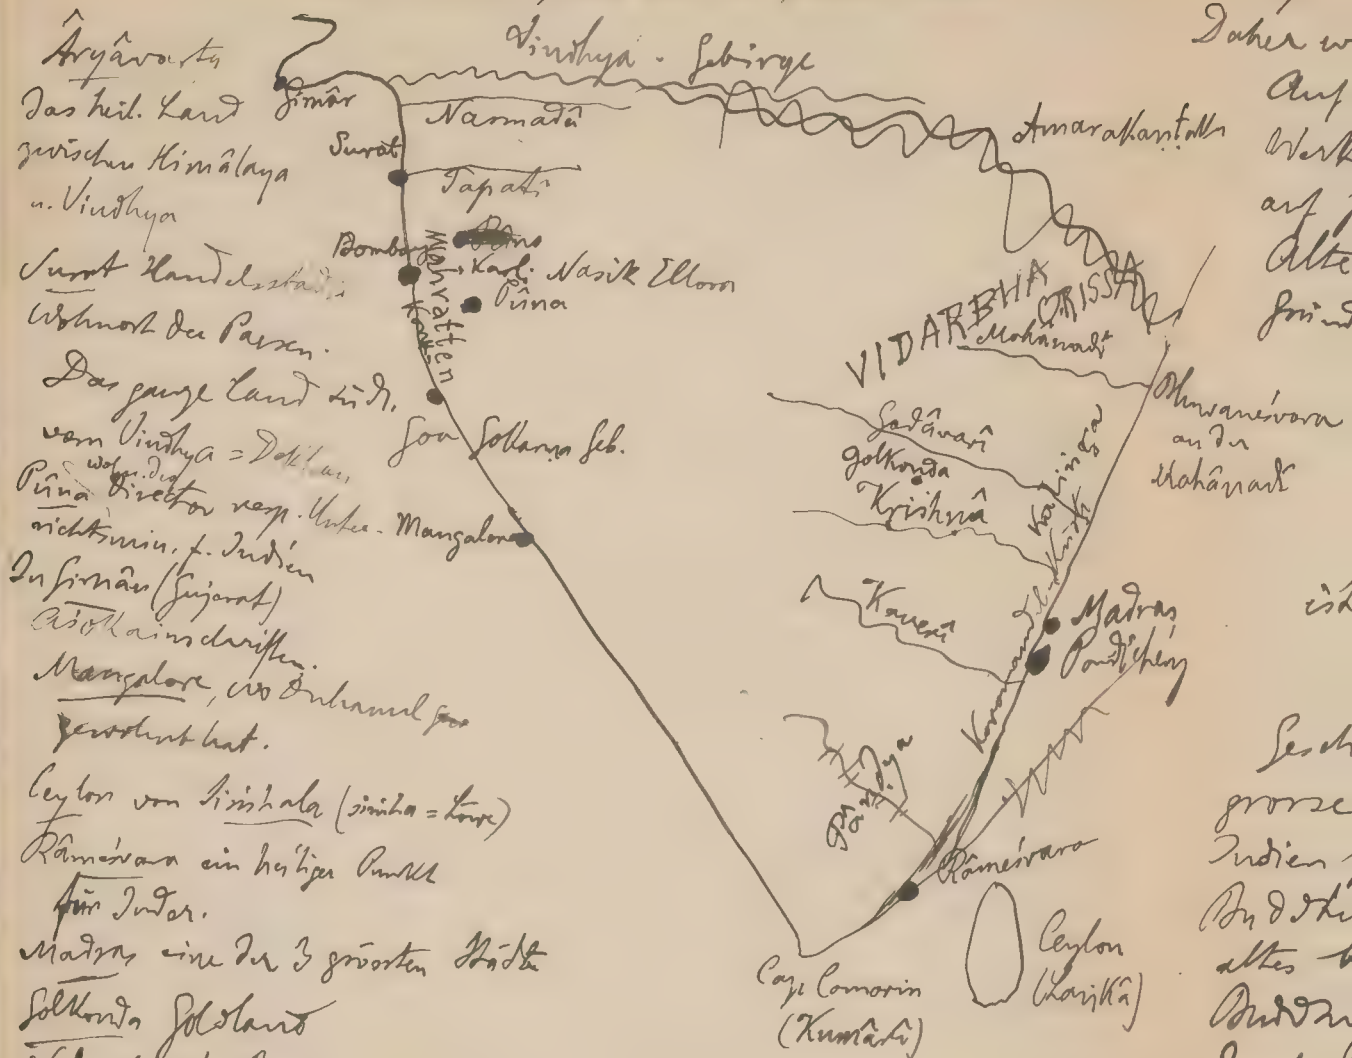 Âryâvarta
Das heil. Land
zwischen Himâlaya
u. Vindhya
Surat Handelsstadt
Wohnort der Parsen.
Das ganze Land südl.
vom Vindhya = Dekkan
wohn. der
Pûna Director resp. Unter-
richtsmin. f. Indien
In Girnâr (Gujerat)
Aśokainschriften.
Mangalore, wo
gewohnt hat.
Ceylon von Siṁhala (siṁha = Löwe)
Râmeśvara ein heiliger Punkt
für Inder.
Madras eine der 3 grössten Städte
Golkonda Goldland
Vindhya-Gebirge
Girnâr
Narmadâ
Surat
Tapatî
Bombay
Mahratten
Karli. Nasik Ellora
Pûna
Konk.
Goa Gokarna Geb.
Mangalore
Amarakaṇṭaka
VIDARBHA
ORISSA
Mahânadî
Bhuvaneśvara
an der
Mahânadî
Godâvarî
Golkonda
Krishnâ
Kalinga
Koromandel-Küste
Kaverî
Madras
Pondichéry
Pâṇḍya
Râmeśvara
Cap Comorin
(Kumârî)
Ceylon
(Laṅkâ)
Daher
Auf
Werk
auf
Alte
Gesch
grosse
Indien
Buddhi
altes
Buddh